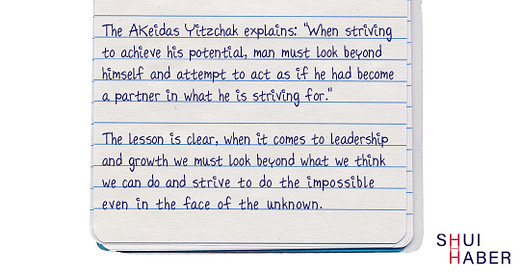 The AKeidas Yitzchak explains: "When striving
to achieve his potential, man must look beyond
himself and attempt to act as if he had become
a partner in what he is striving for."
The lesson is clear, when it comes to leadership
and growth we must look beyond what we think
we can do and strive to do the impossible
even in the face of the unknown.
SHUI
HABER